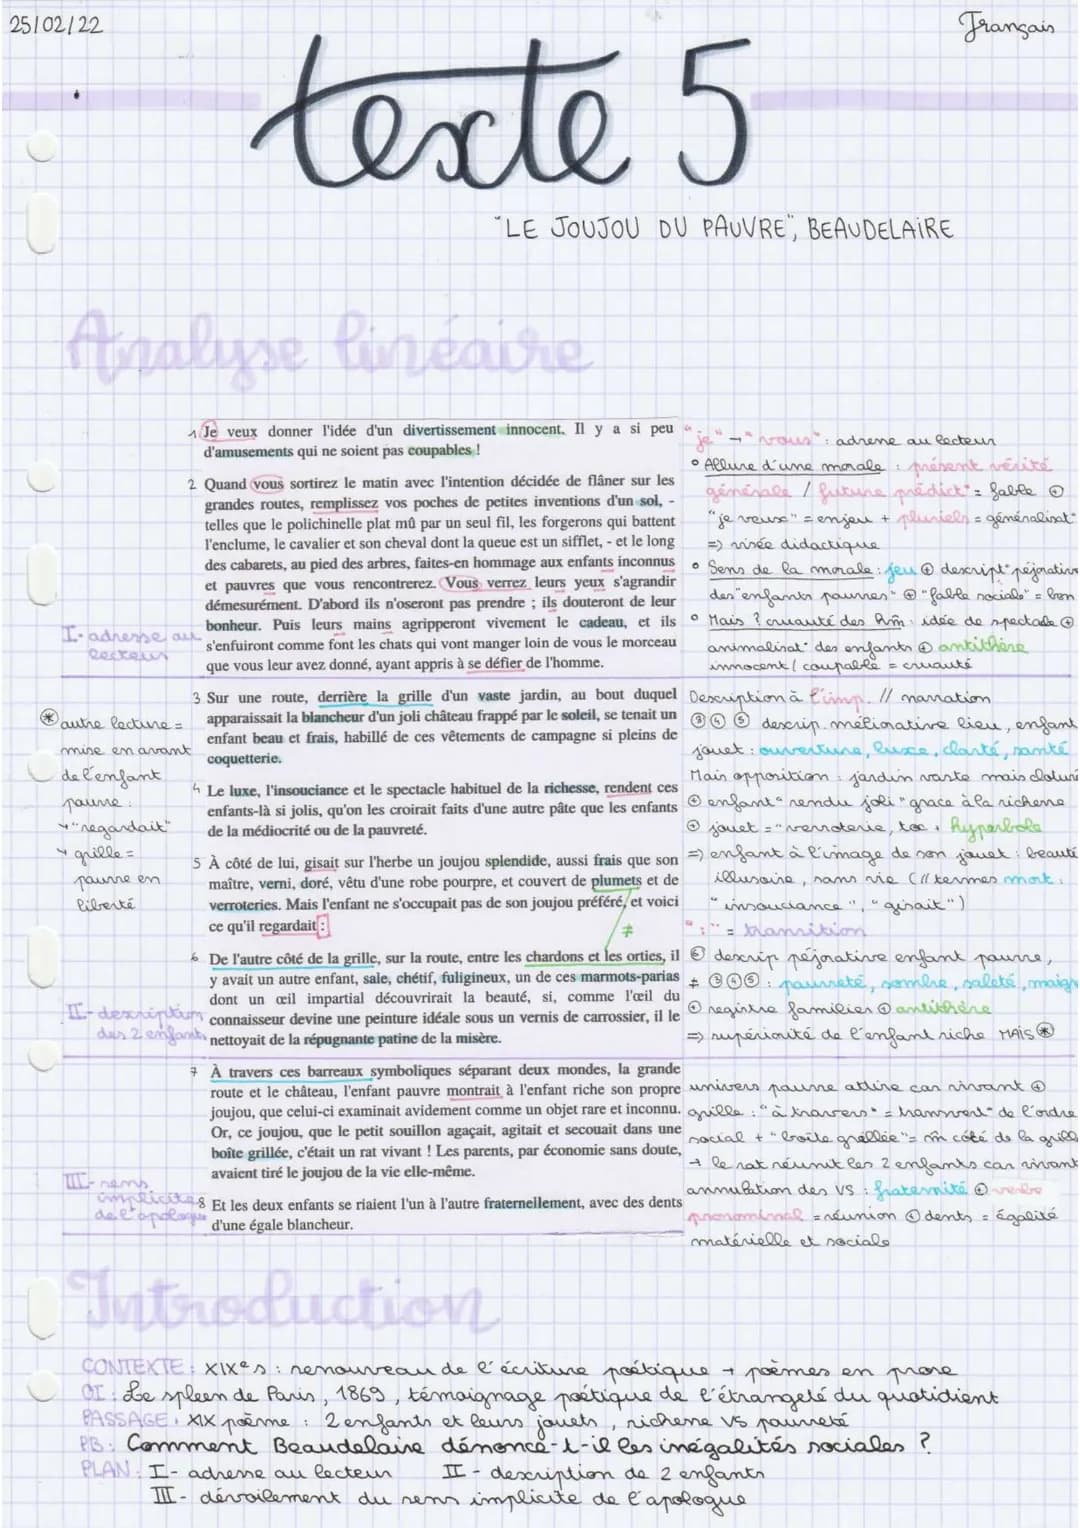 25/02/22
Français
texte 5
"LE JOUJOU DU PAUVRE", BEAUDELAIRE
Analyse linéaire
1 Je veux donner l'idée d'un divertissement innocent. Il y a si peu
d'amusements qui ne soient pas coupables !
2 Quand vous sortirez le matin avec l'intention décidée de flâner sur les
grandes routes, remplissez vos poches de petites inventions d'un sol, -
telles que le polichinelle plat mû par un seul fil, les forgerons qui battent
l'enclume, le cavalier et son cheval dont la queue est un sifflet, - et le long
des cabarets, au pied des arbres, faites-en hommage aux enfants inconnus
et pauvres que vous rencontrerez. Vous verrez leurs yeux s'agrandir
démesurément. D'abord ils n'oseront pas prendre ; ils douteront de leur
bonheur. Puis leurs mains agripperont vivement le cadeau, et ils
s'enfuiront comme font les chats qui vont manger loin de vous le morceau
que vous leur avez donné, ayant appris à se défier de l'homme.
I- adresse au
lecteur
"je" → "vous" : adresse au lecteur
° Allure d'une morale : présent vérité
générale / futur prédict° = fable ⊕
"je veux" = enjeu + pluriels = généralisat°
=> visée didactique
° Sens de la morale : jeu ⊕ descript° péjorative
des "enfants pauvres" ⊕ "fable sociale" = bon
° Mais ? cruauté des hm : idée de spectacle ⊕
animalisat° des enfants ⊕ antithèse
innocent / coupable = cruauté
3 Sur une route, derrière la grille d'un vaste jardin, au bout duquel
apparaissait la blancheur d'un joli château frappé par le soleil, se tenait un
enfant beau et frais, habillé de ces vêtements de campagne si pleins de
coquetterie.
4 Le luxe, l'insouciance et le spectacle habituel de la richesse, rendent ces
enfants-là si jolis, qu'on les croirait faits d'une autre pâte que les enfants
de la médiocrité ou de la pauvreté.
5 À côté de lui, gisait sur l'herbe un joujou splendide, aussi frais que son
maître, verni, doré, vêtu d'une robe pourpre, et couvert de plumets et de
verroteries. Mais l'enfant ne s'occupait pas de son joujou préféré, et voici
ce qu'il regardait :
≠
6 De l'autre côté de la grille, sur la route, entre les chardons et les orties, il
y avait un autre enfant, sale, chétif, fuligineux, un de ces marmots-parias
dont un œil impartial découvrirait la beauté, si, comme l'œil du
connaisseur devine une peinture idéale sous un vernis de carrossier, il le
nettoyait de la répugnante patine de la misère.
* autre lecture =
mise en avant
de l'enfant
pauvre :
↳ "regardait"
↳ grille =
pauvre en
liberté
II- description
des 2 enfants
Description à l'imp. // narration
③④⑤ descrip. méliorative lieu, enfant
jouet : ouverture, luxe, clarté, santé
Mais opposition : jardin vaste mais cloturé
⊕ enfant "rendu joli" grace à la richesse
⊕ jouet = "verroterie, toc + hyperbole
=> enfant à l'image de son jouet : beauté
illusoire, sans vie (// termes mort :
"insouciance", "gisait")
" : " = transition
⑥ descrip péjorative enfant pauvre,
≠ ③④⑤ : pauvreté, sombre, saleté, maigre
⊕ registre familier ⊕ antithèse
=> supériorité de l'enfant riche MAIS *
7 À travers ces barreaux symboliques séparant deux mondes, la grande
route et le château, l'enfant pauvre montrait à l'enfant riche son propre
joujou, que celui-ci examinait avidement comme un objet rare et inconnu.
Or, ce joujou, que le petit souillon agaçait, agitait et secouait dans une
boîte grillée, c'était un rat vivant ! Les parents, par économie sans doute,
avaient tiré le joujou de la vie elle-même.
8 Et les deux enfants se riaient l'un à l'autre fraternellement, avec des dents
d'une égale blancheur.
III- sens
implicite
de l'apologue
univers pauvre attire car vivant ⊕
grille : "à travers" = transvers° de l'ordre
social + "boîte grillée" = m côté de la grille
→ le rat réunit les 2 enfants car vivant
annulation des VS : fraternité ⊕ verbe
pronominal = réunion ⊕ dents = égalité
matérielle et sociale
Introduction
CONTEXTE : XIXe s : renouveau de l'écriture poétique → poèmes en prose
OI : Le spleen de Paris, 1869, témoignage poétique de l'étrangeté du quotidient
PASSAGE : XIX poème : 2 enfants et leurs jouets, richesse VS pauvreté
PB : Comment Beaudelaire dénonce-t-il les inégalités sociales ?
PLAN : I- adresse au lecteur II- description de 2 enfants
III- dévoilement du sens implicite de l'apologue